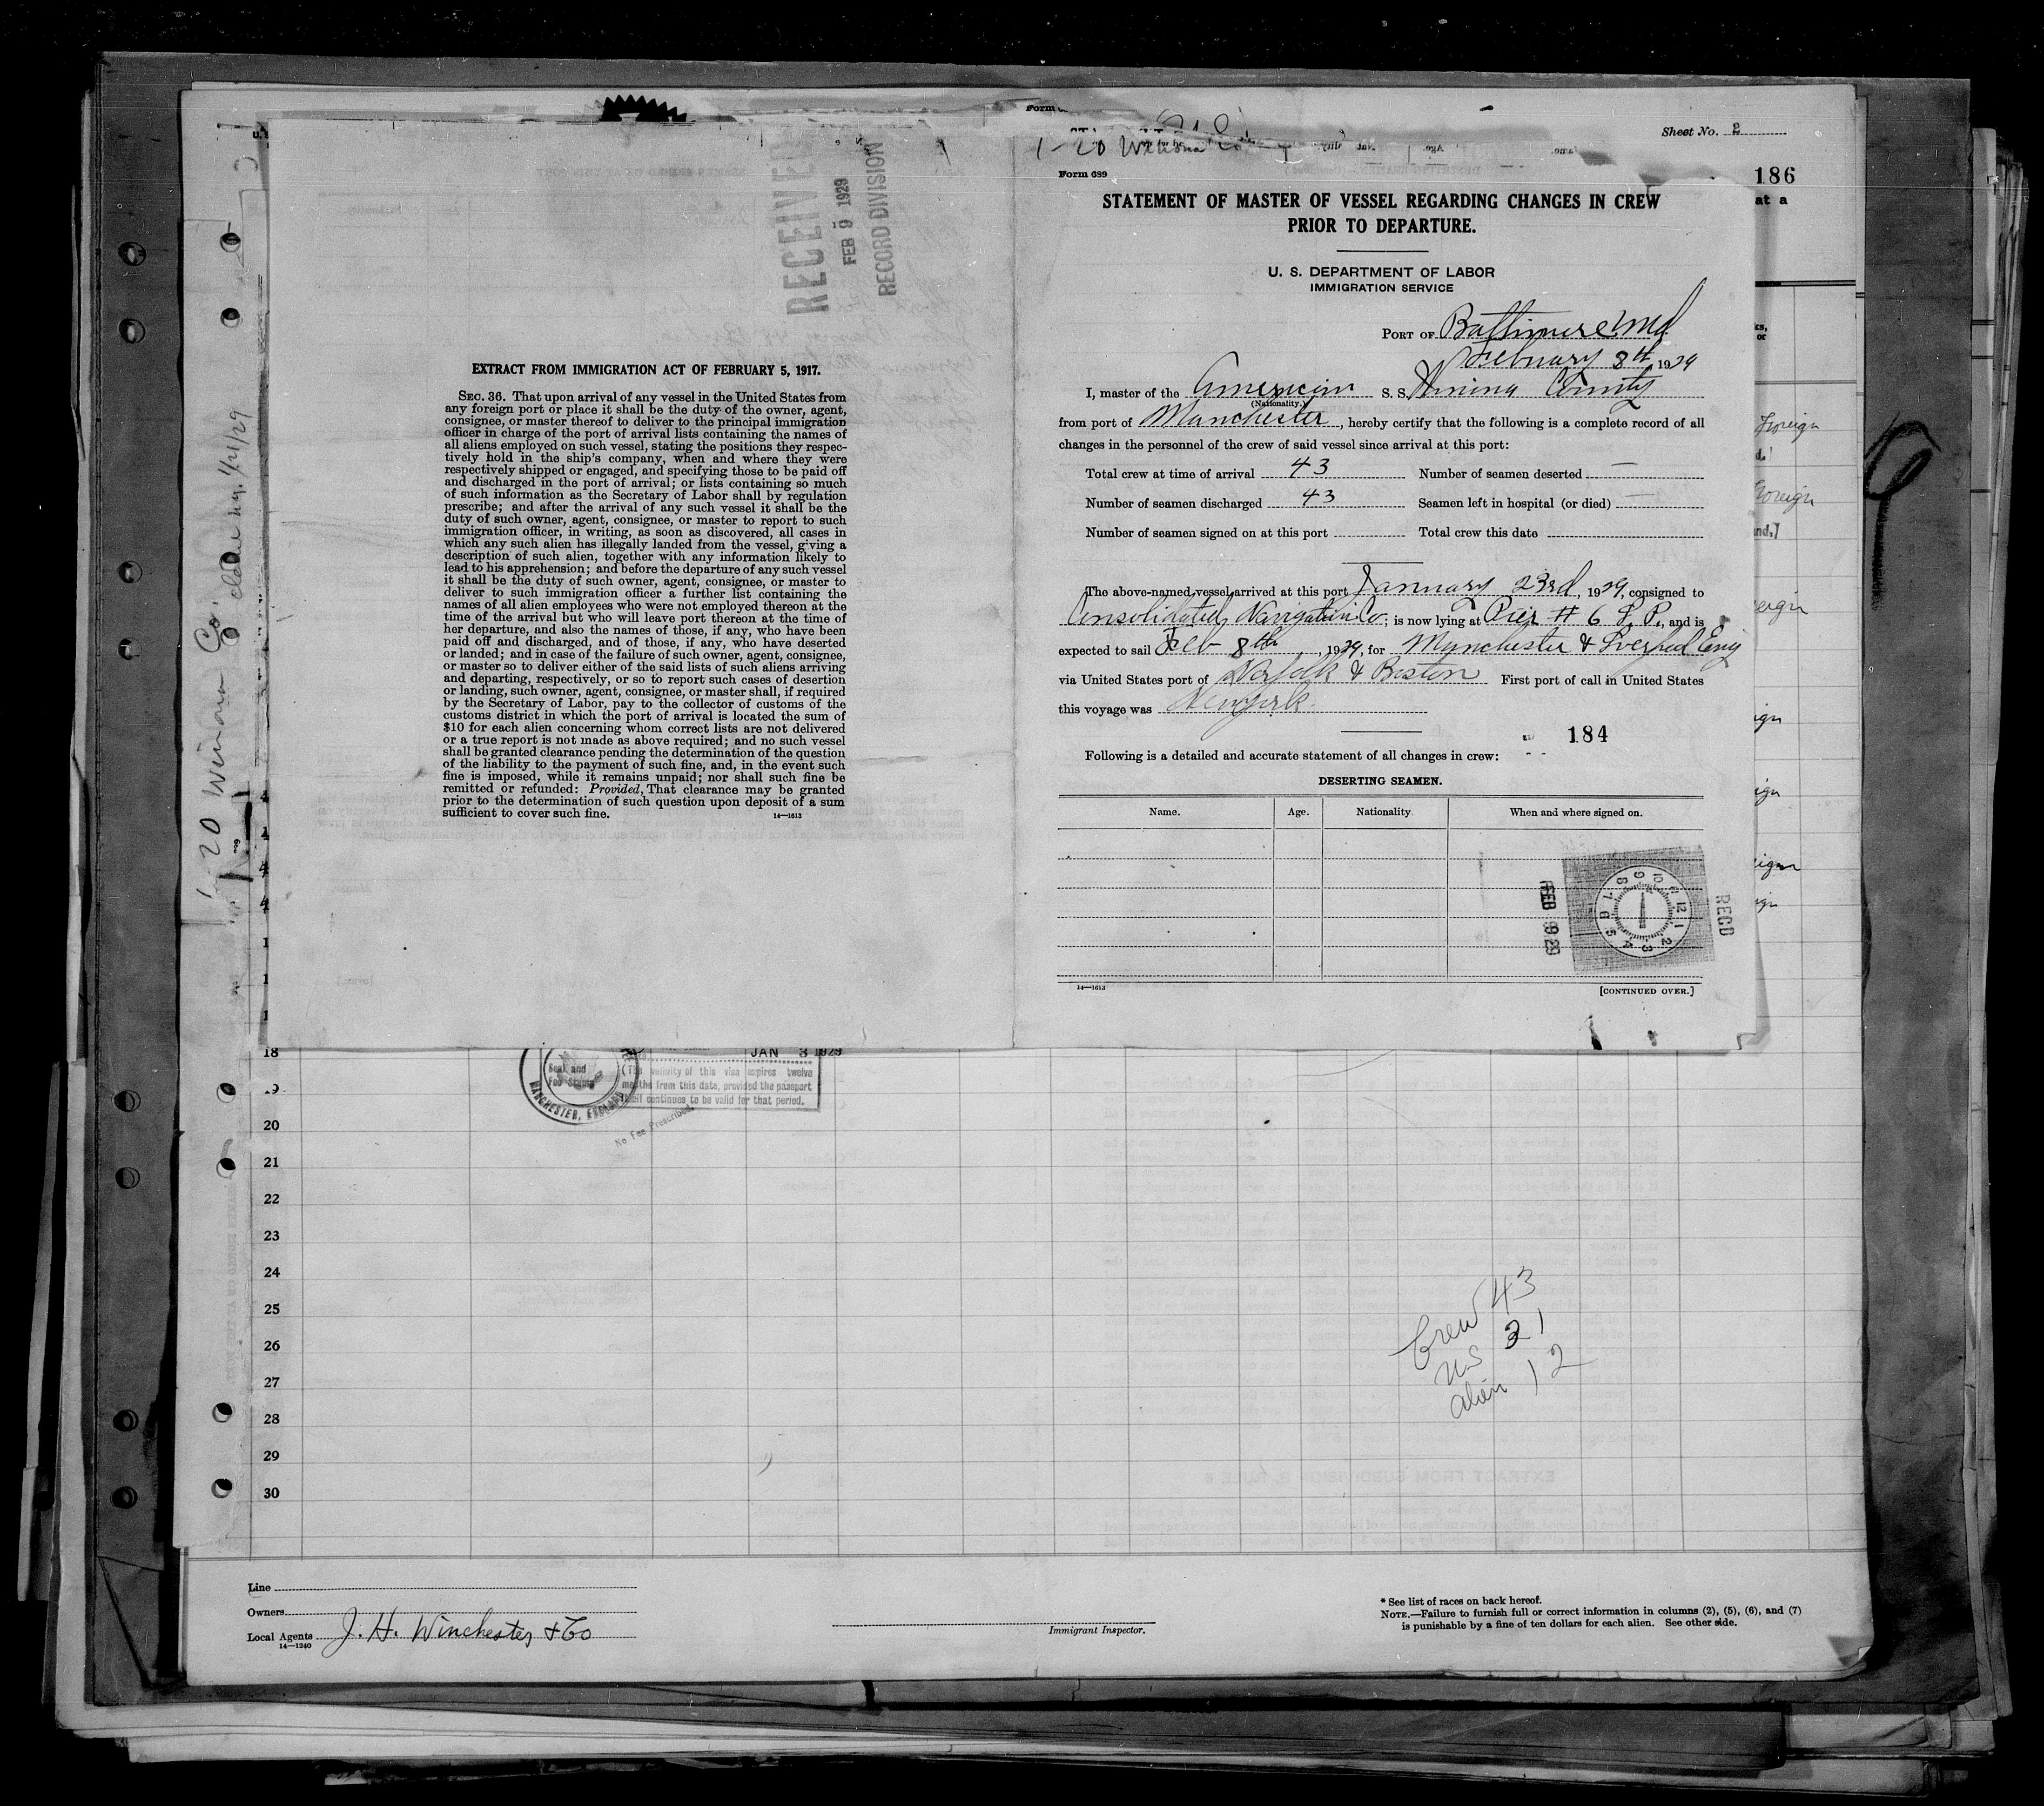 Sheet No. 2
186
at a
1-20 Winona Co.
RECEIVED
FEB 9 1929
RECORD DIVISION
EXTRACT FROM IMMIGRATION ACT OF FEBRUARY 5, 1917.
SEC. 36. That upon arrival of any vessel in the United States from
any foreign port or place it shall be the duty of the owner, agent,
consignee, or master thereof to deliver to the principal immigration
officer in charge of the port of arrival lists containing the names of
all aliens employed on such vessel, stating the positions they respec-
tively hold in the ship's company, when and where they were
respectively shipped or engaged, and specifying those to be paid off
and discharged in the port of arrival; or lists containing so much
of such information as the Secretary of Labor shall by regulation
prescribe; and after the arrival of any such vessel it shall be the
duty of such owner, agent, consignee, or master to report to such
immigration officer, in writing, as soon as discovered, all cases in
which any such alien has illegally landed from the vessel, giving a
description of such alien, together with any information likely to
lead to his apprehension; and before the departure of any such vessel
it shall be the duty of such owner, agent, consignee, or master to
deliver to such immigration officer a further list containing the
names of all alien employees who were not employed thereon at the
time of the arrival but who will leave port thereon at the time of
her departure, and also the names of those, if any, who have been
paid off and discharged, and of those, if any, who have deserted
or landed; and in case of the failure of such owner, agent, consignee,
or master so to deliver either of the said lists of such aliens arriving
and departing, respectively, or so to report such cases of desertion
or landing, such owner, agent, consignee, or master shall, if required
by the Secretary of Labor, pay to the collector of customs of the
customs district in which the port of arrival is located the sum of
$10 for each alien concerning whom correct lists are not delivered
or a true report is not made as above required; and no such vessel
shall be granted clearance pending the determination of the question
of the liability to the payment of such fine, and, in the event such
fine is imposed, while it remains unpaid; nor shall such fine be
remitted or refunded: Provided, That clearance may be granted
prior to the determination of such question upon deposit of a sum
sufficient to cover such fine.
14—1613
Form 689
STATEMENT OF MASTER OF VESSEL REGARDING CHANGES IN CREW
PRIOR TO DEPARTURE.
U. S. DEPARTMENT OF LABOR
IMMIGRATION SERVICE
PORT OF Baltimore Md
February 8th 1929
I, master of the American S. S. Winona County
(Nationality.)
from port of Manchester, hereby certify that the following is a complete record of all
changes in the personnel of the crew of said vessel since arrival at this port:
Total crew at time of arrival 43 Number of seamen deserted —
Number of seamen discharged 43 Seamen left in hospital (or died) —
Number of seamen signed on at this port Total crew this date
The above-named vessel arrived at this port January 23rd, 1929, consigned to
Consolidated Navigation Co. is now lying at Pier # 6 L. P., and is
expected to sail Feb 8th, 1929, for Manchester & Liverpool Eng
via United States port of Norfolk & Boston First port of call in United States
this voyage was New York
184
Following is a detailed and accurate statement of all changes in crew:
DESERTING SEAMEN.
Name. Age. Nationality. When and where signed on.
FEB 9 29
REC'D
14—1613
[CONTINUED OVER.]
Foreign
Foreign
1-20 Winona Co.
JAN 3 1929
Seal and
Fee Stamp
MANCHESTER, ENGLAND
(The validity of this visa expires twelve
months from this date, provided the passport
itself continues to be valid for that period.
No Fee Prescribed
18
19
20
21
22
23
24
25
26
27
28
29
30
Crew 43
US 31
alien 12
Line
Owners
Local Agents J. H. Winchester & Co
14—1240
Immigrant Inspector.
* See list of races on back hereof.
NOTE.—Failure to furnish full or correct information in columns (2), (5), (6), and (7)
is punishable by a fine of ten dollars for each alien. See other side.